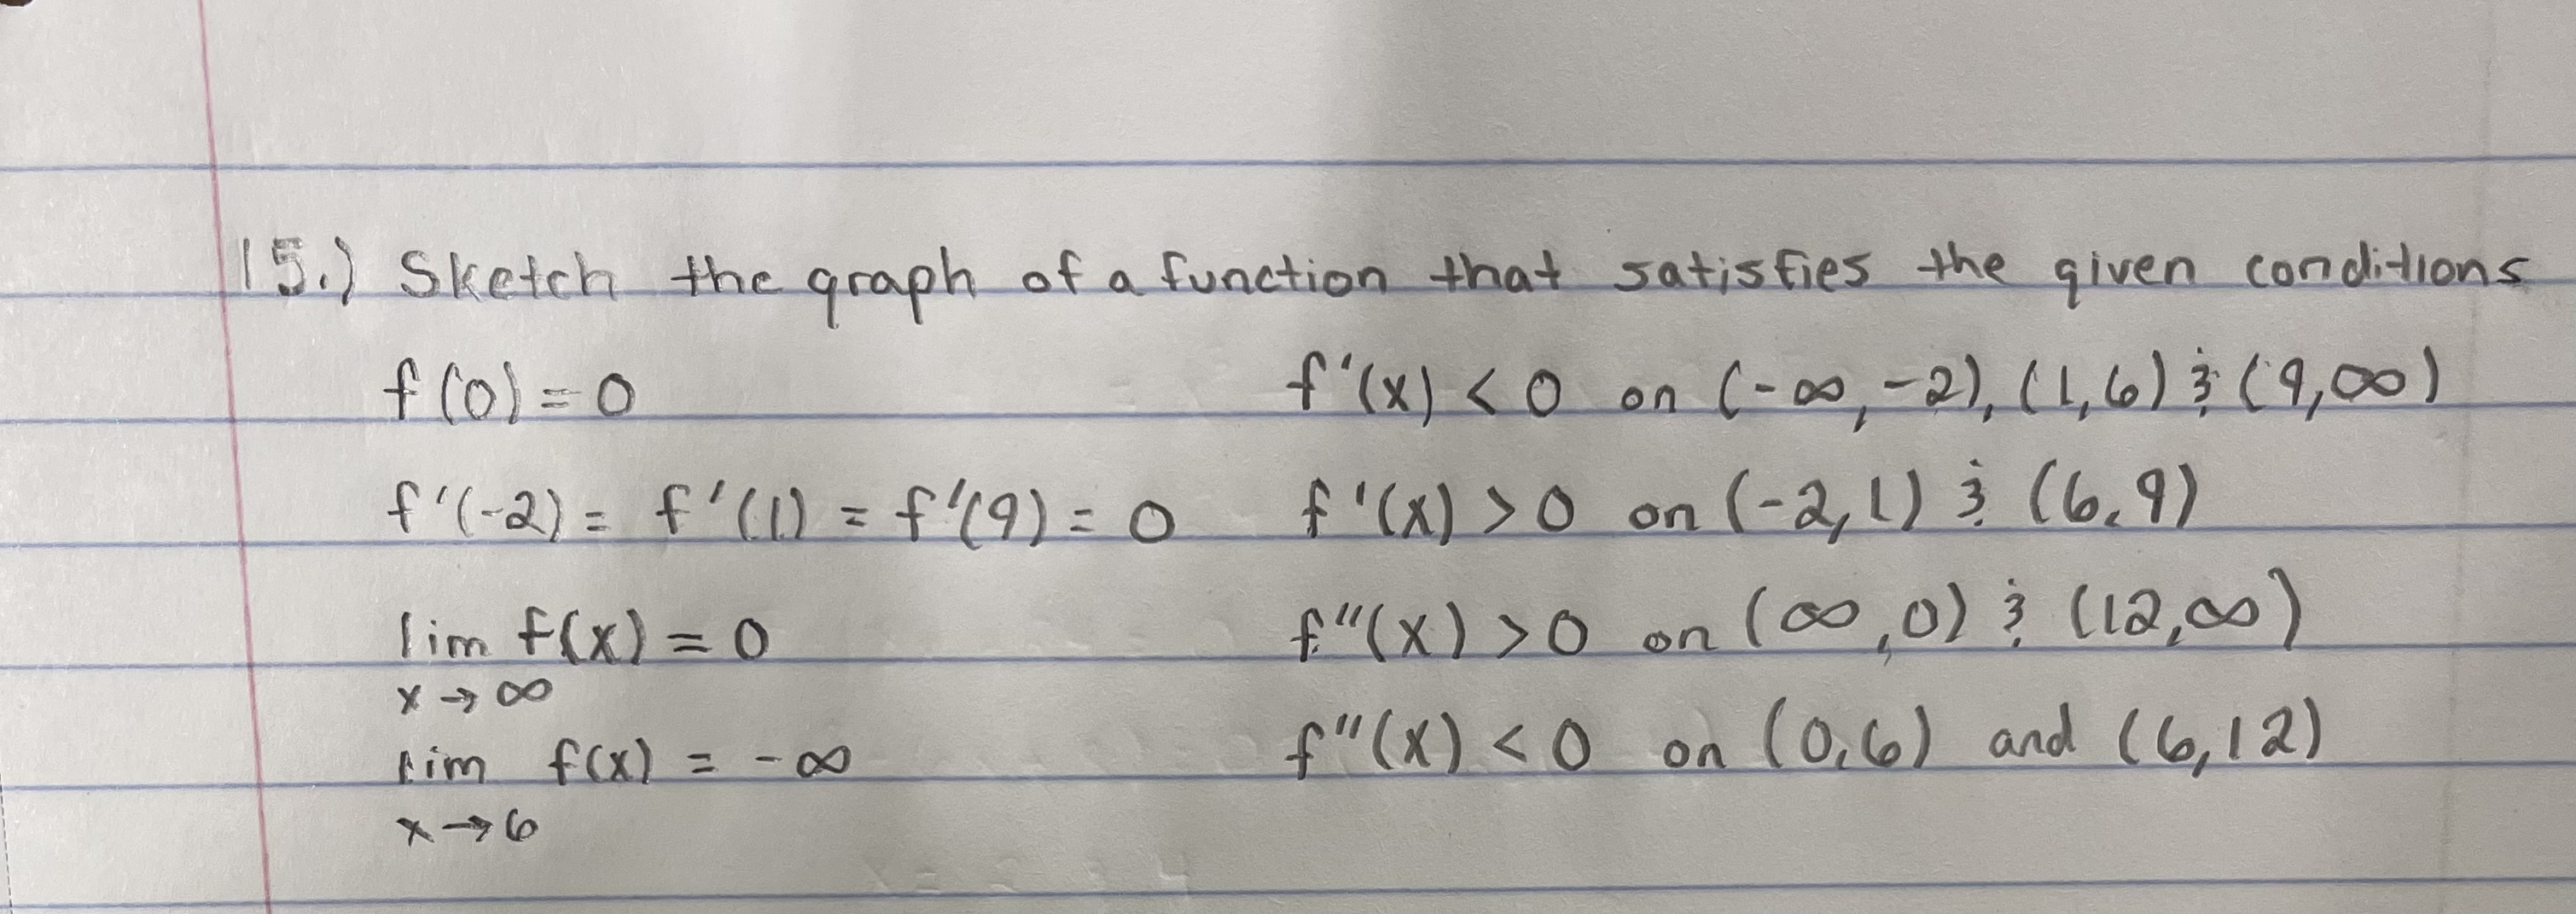 15.) Sketch the graph of a function that satisfies the given conditions
f(0) = 0
f'(x) < 0 on (-∞, -2), (1,6) & (9,∞)
f'(-2) = f'(1) = f'(9) = 0
f'(x) > 0 on (-2,1) & (6,9)
lim f(x) = 0
x → ∞
f''(x) > 0 on (∞,0) & (12,∞)
lim f(x) = -∞
x → 6
f''(x) < 0 on (0,6) and (6,12)